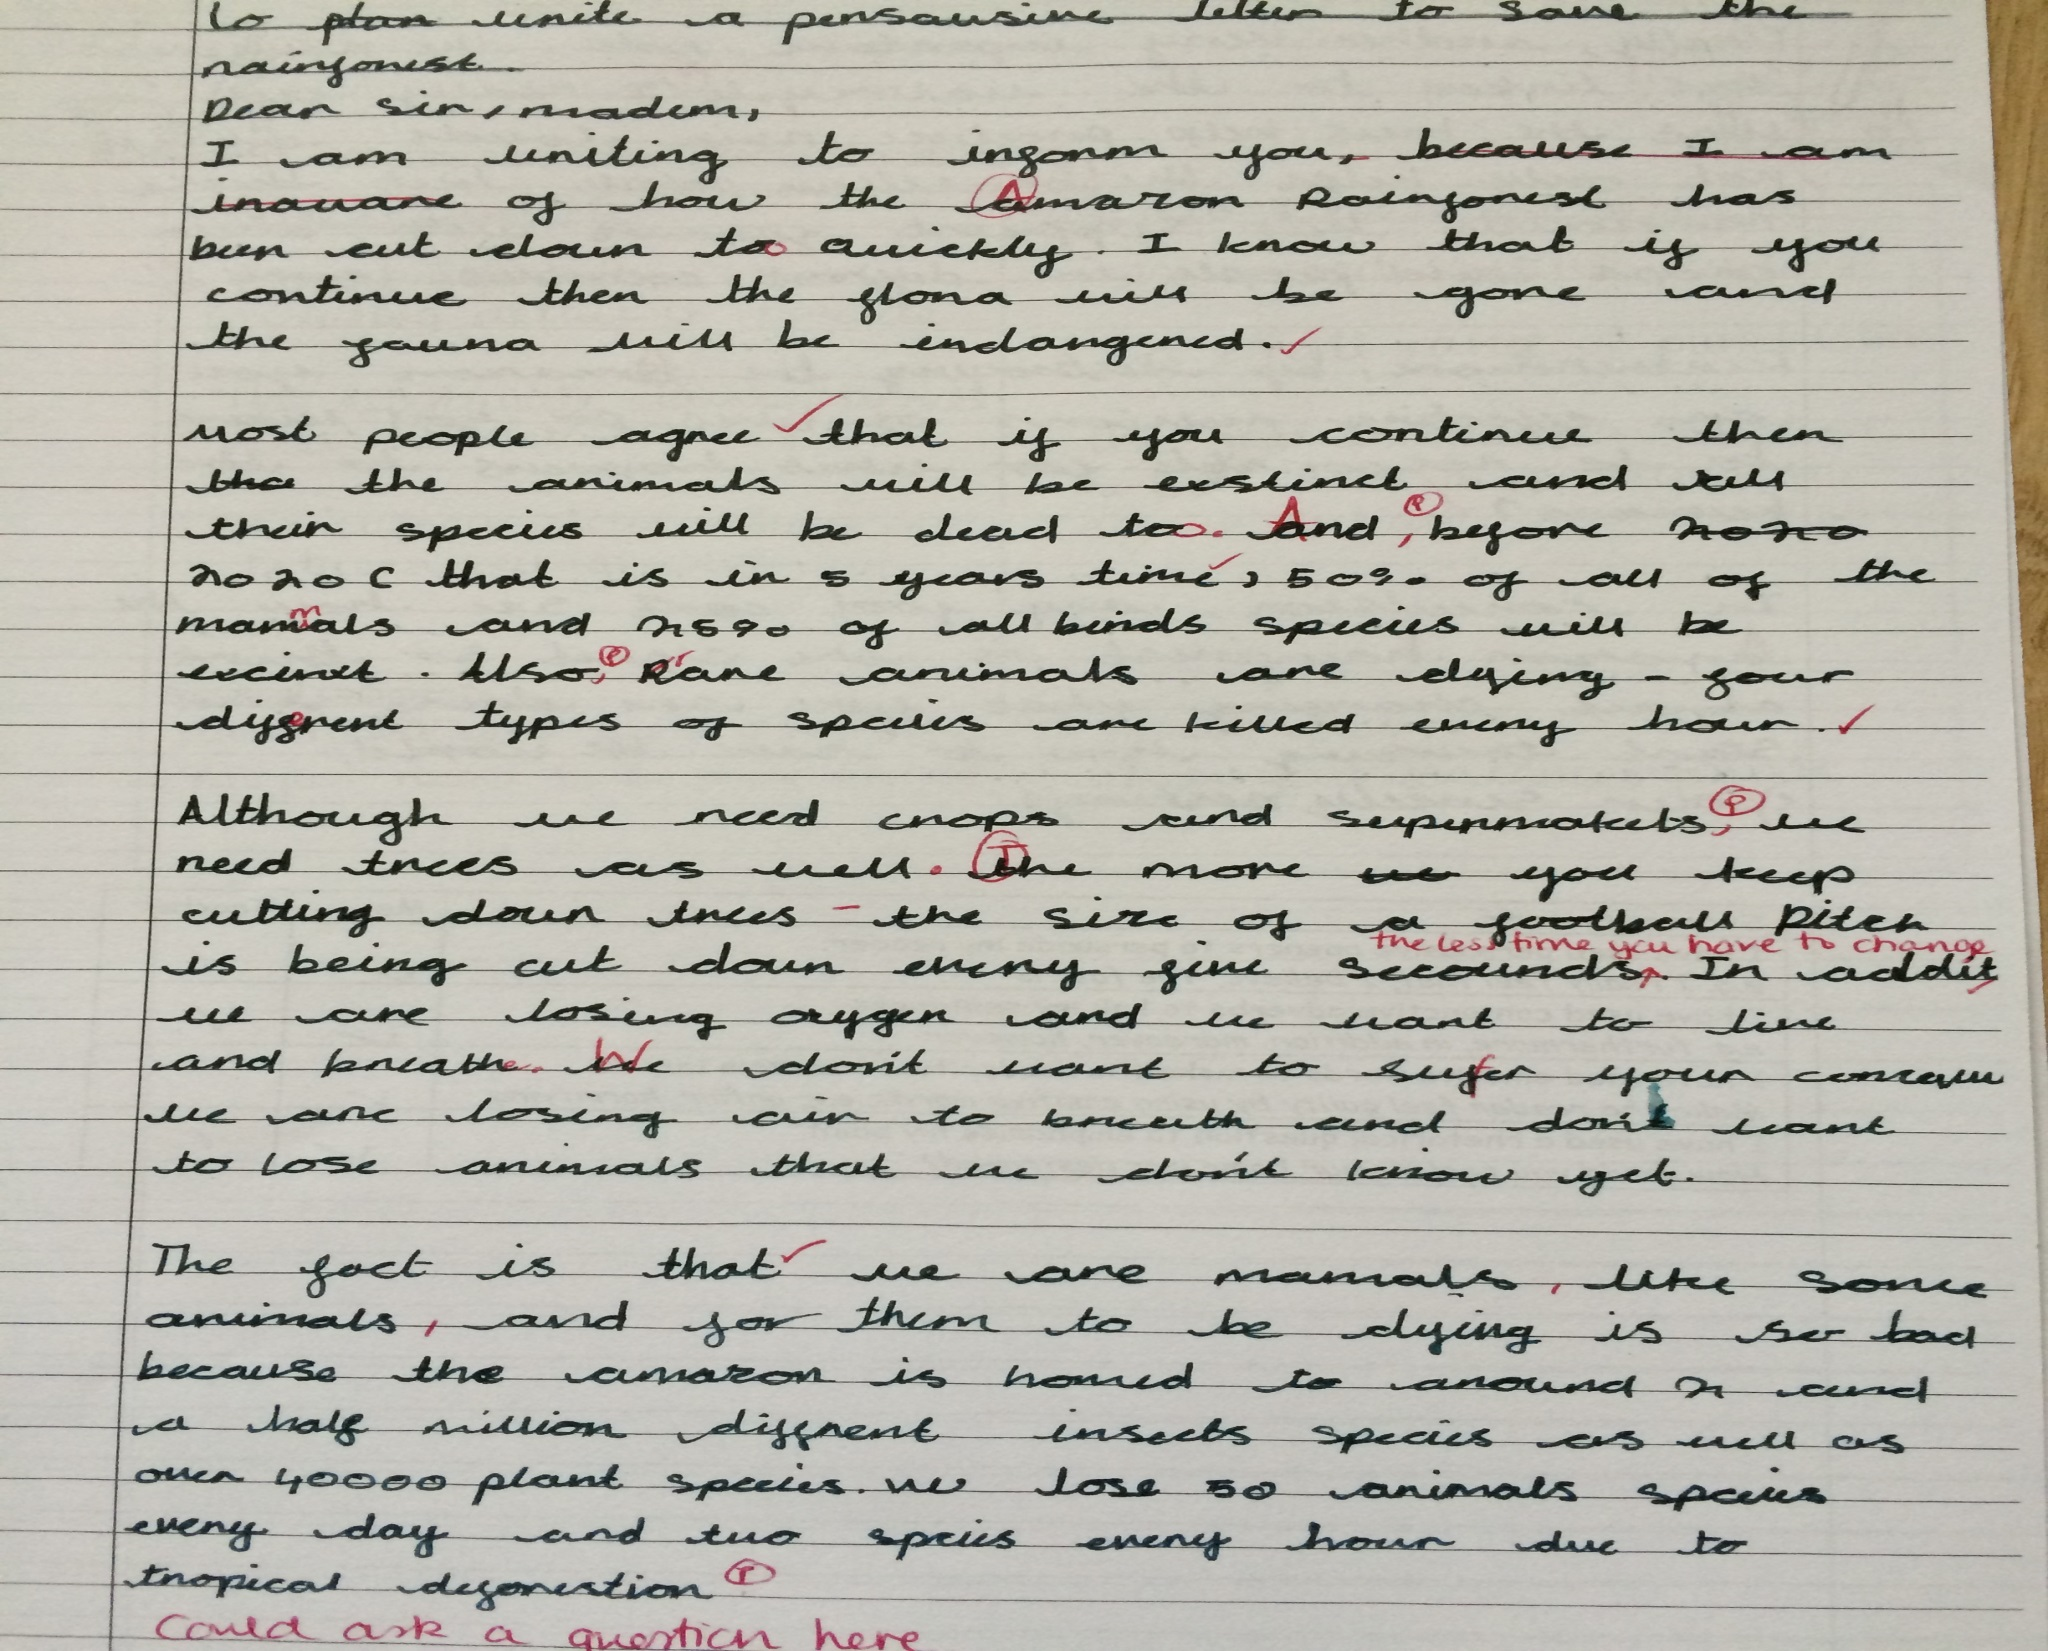 To plan write a persausive letter to save the
rainforest.
Dear Sir, madem,
I am writing to inform you, because I am
inaware of how the Amazon Rainforest has
been cut down too quickly. I know that if you
continue then the flora will be gone and
the fauna will be endangered. ✓
Most people agree ✓ that if you continue then
tha the animals will be exstinct and all
their species will be dead too. And, (P) before 2020
2020 ( that is in 5 years time ✓, 50% of all of the
mammals and 25% of all birds species will be
excinxt. Also, (P) Rare animals are dying - four
different types of species are killed every hour. ✓
Although we need crops and supermakets, (P) we
need trees as well. The more we you keep
cutting down trees - the size of a football Pitch
the less time you have to change
is being cut down every five secounds. In addit
we are losing oxygen and we want to live
and breathe. We don't want to suffer your
we are losing air to breath and don't want
to lose animals that we don't know yet.
The fact is that ✓ we are mamals, like some
animals, and for them to be dying is so bad
because the amazon is homed to around 2 and
a half million diffrent insects species as well as
over 40000 plant species. We lose 50 animals species
every day and two species every hour due to
tropical deforestion (P)
Could ask a question here